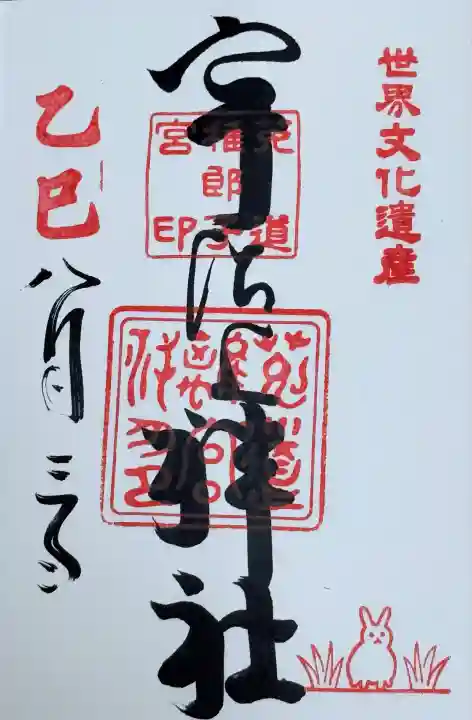 世界文化遺産
宇治上神社
菟道
稚郎子
宮印
乙巳
八月三日